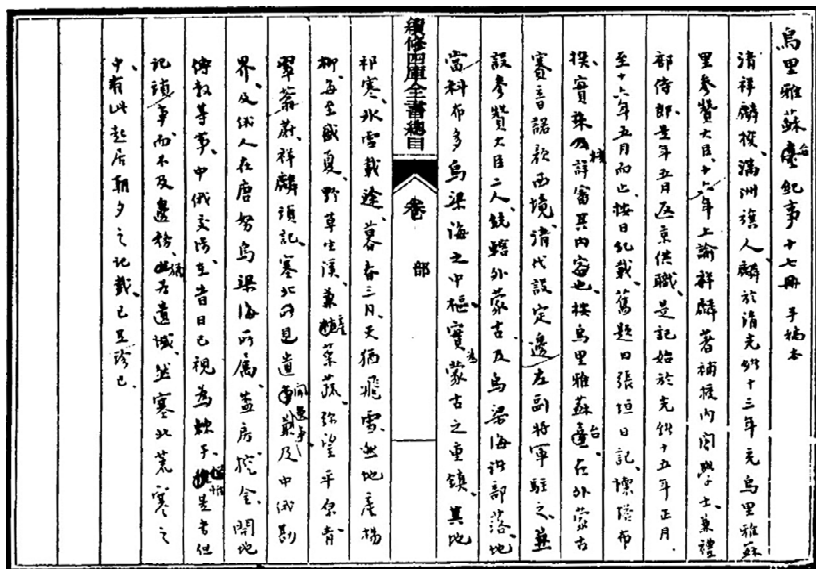 烏里雅蘇臺紀事十七冊 手稿本
清祥麟撰、滿洲旗人、麟於清光緒十三年充烏里雅蘇
里參贊大臣、十六年上諭祥麟著補授內閣學士、兼禮
部侍郎、是年五月返京供職、是記始於光緒十五年正月、
至十六年五月而止、按日紀載、舊題曰張垣日記、標塔布
撰、實未及詳審其內容也、按烏里雅蘇台在外蒙古
賽音諾顏西境、清代設定邊左副將軍駐之、並
設參贊大臣二人、統轄外蒙古及烏梁海諸部落、地
當科布多烏梁海之中樞、實為蒙古之重鎮、其地
續修四庫全書總目
卷
部
祁寒、氷雪載途、暮春三月、天猶飛雪、然地產楊
柳、每至盛夏、野草生溪、兼產菜蔬、弥望平原、青
翠蓊蔚、祥麟頃記、塞北所見道間遺事、及中俄勘
界、及俄人在唐努烏梁海所屬、蓋房挖金、開地
傳教等事、中俄交涉在昔日已視為棘手、惟是書但
記瑣事、而不及邊務、稍為遺憾、然塞北荒寒之
中、有此起居朝夕之記載、已足珍已、